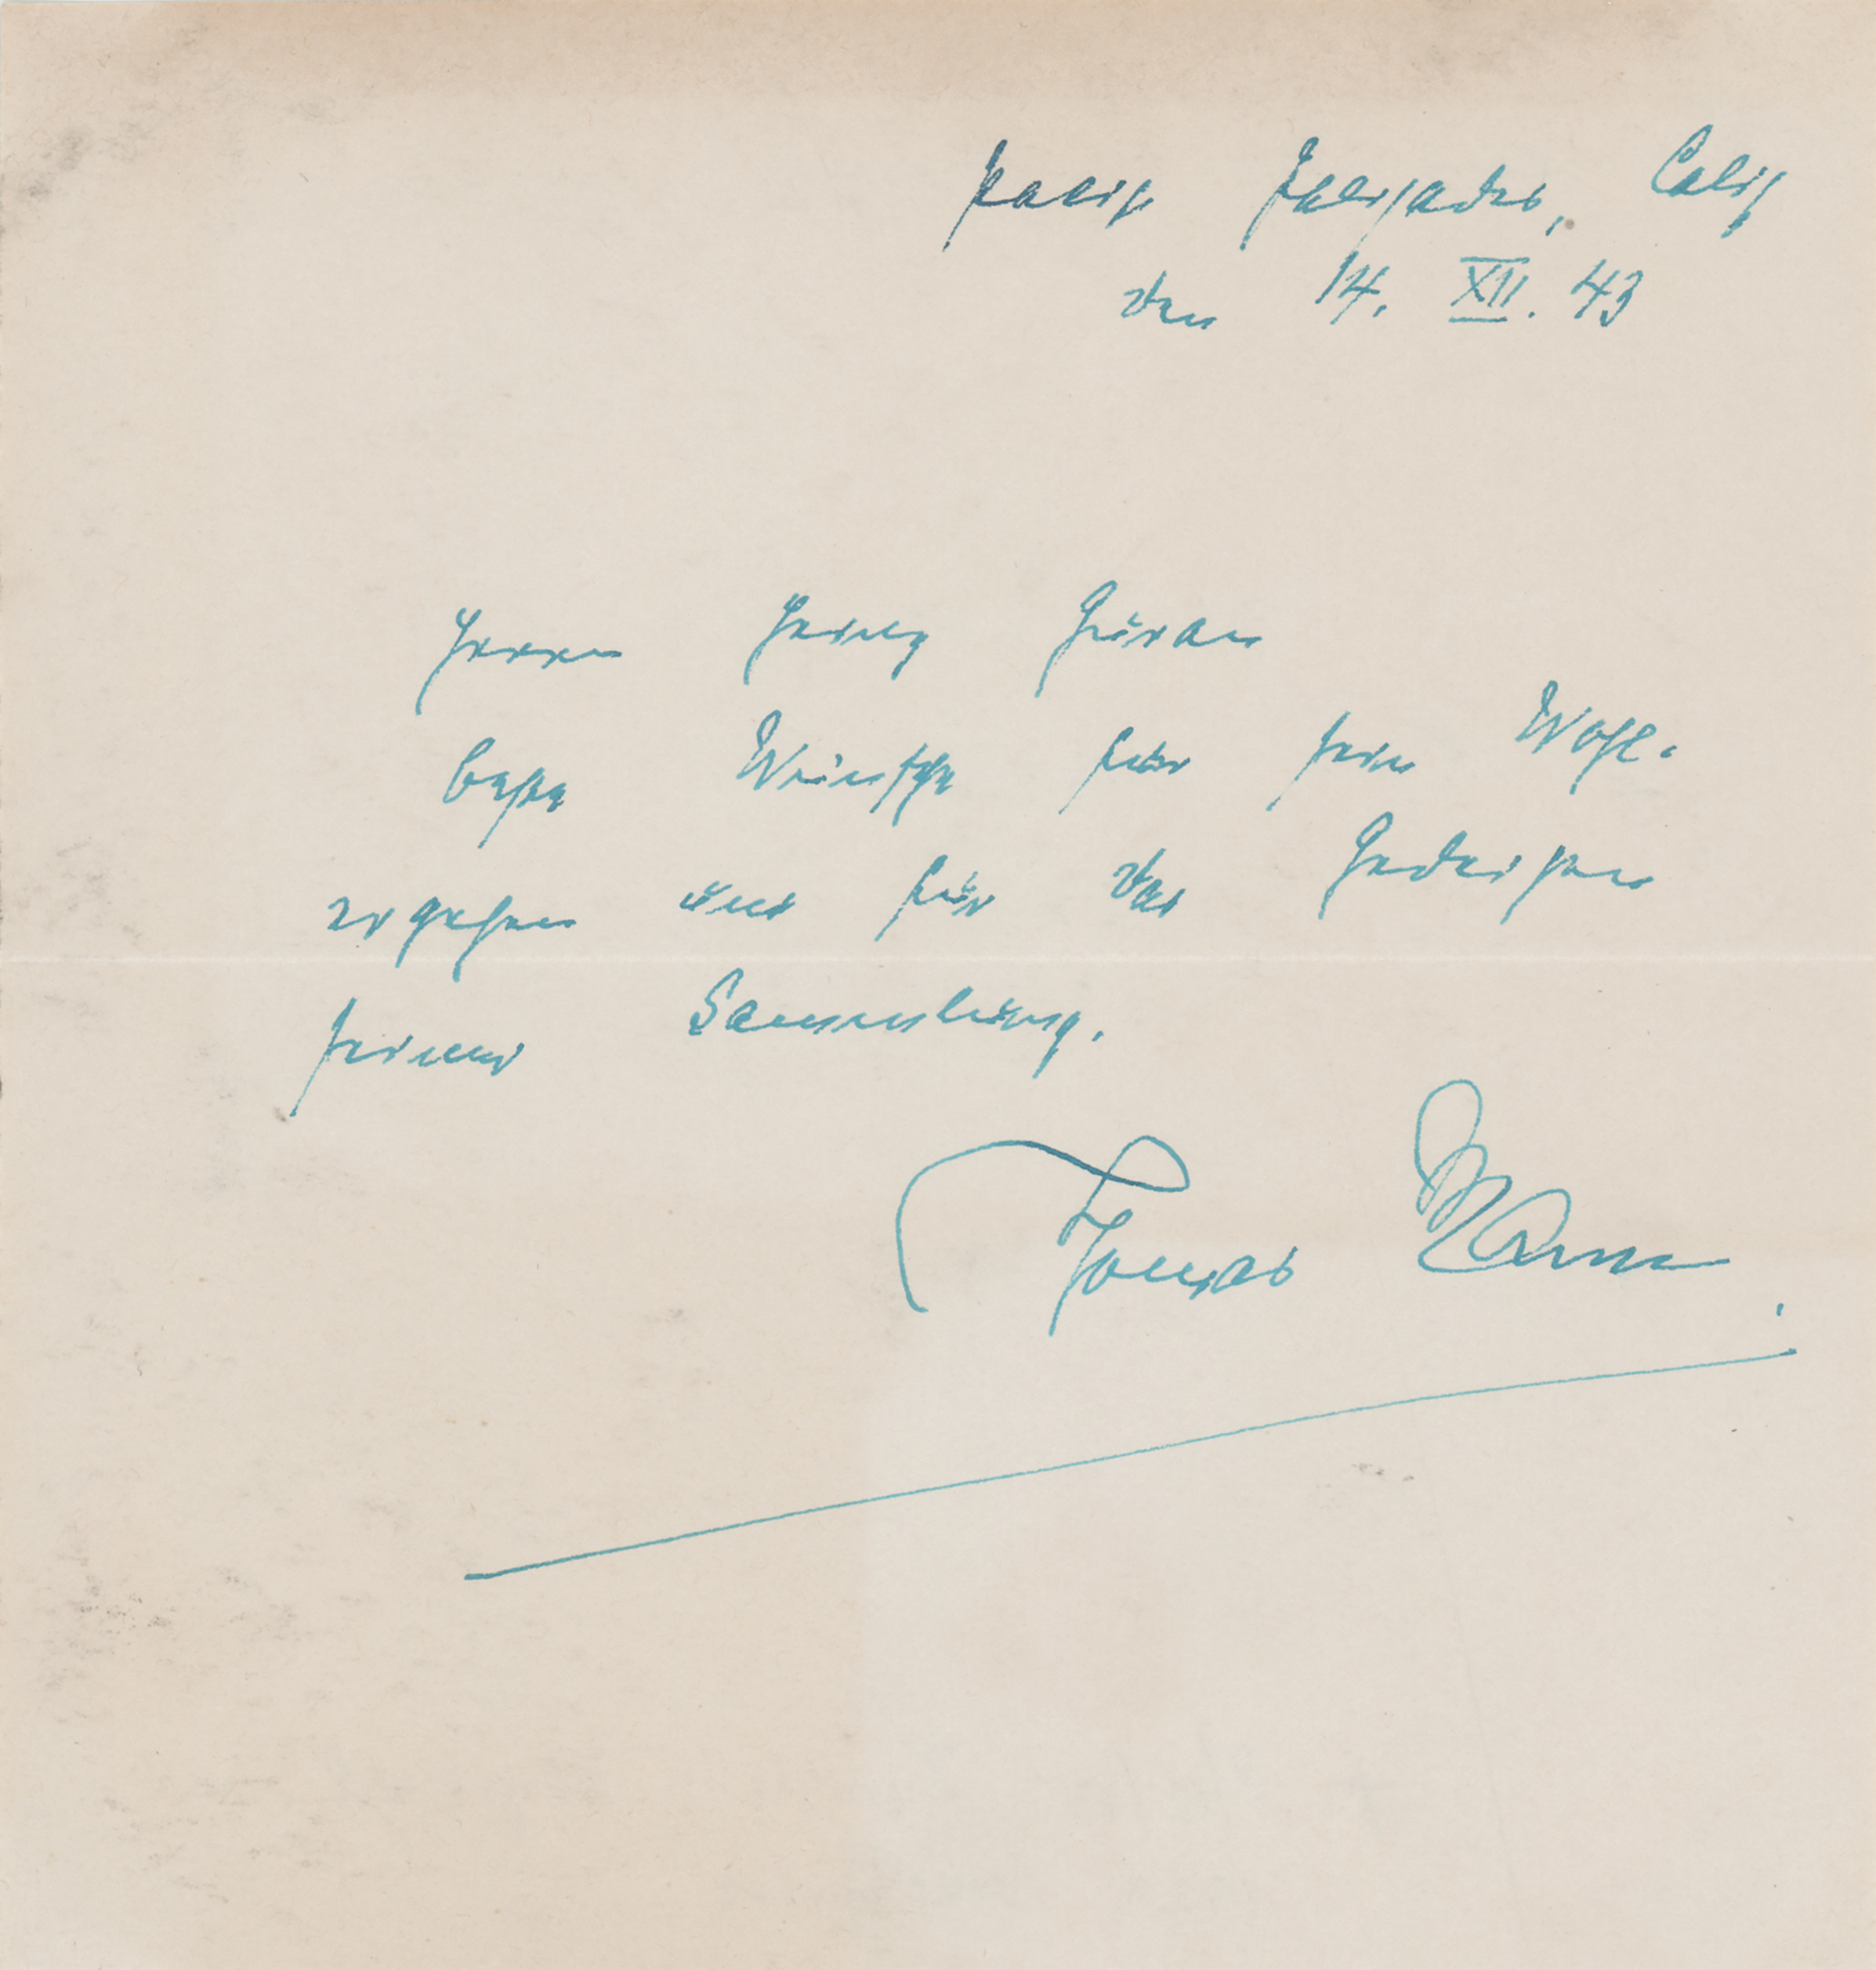 Pacif. Palisades, Calif.
den 14. XII. 43
Herrn Heinz
beste Wünsche für sein Wohl-
ergehen und für das Gedeihen
seiner Sammlung.
Thomas Mann